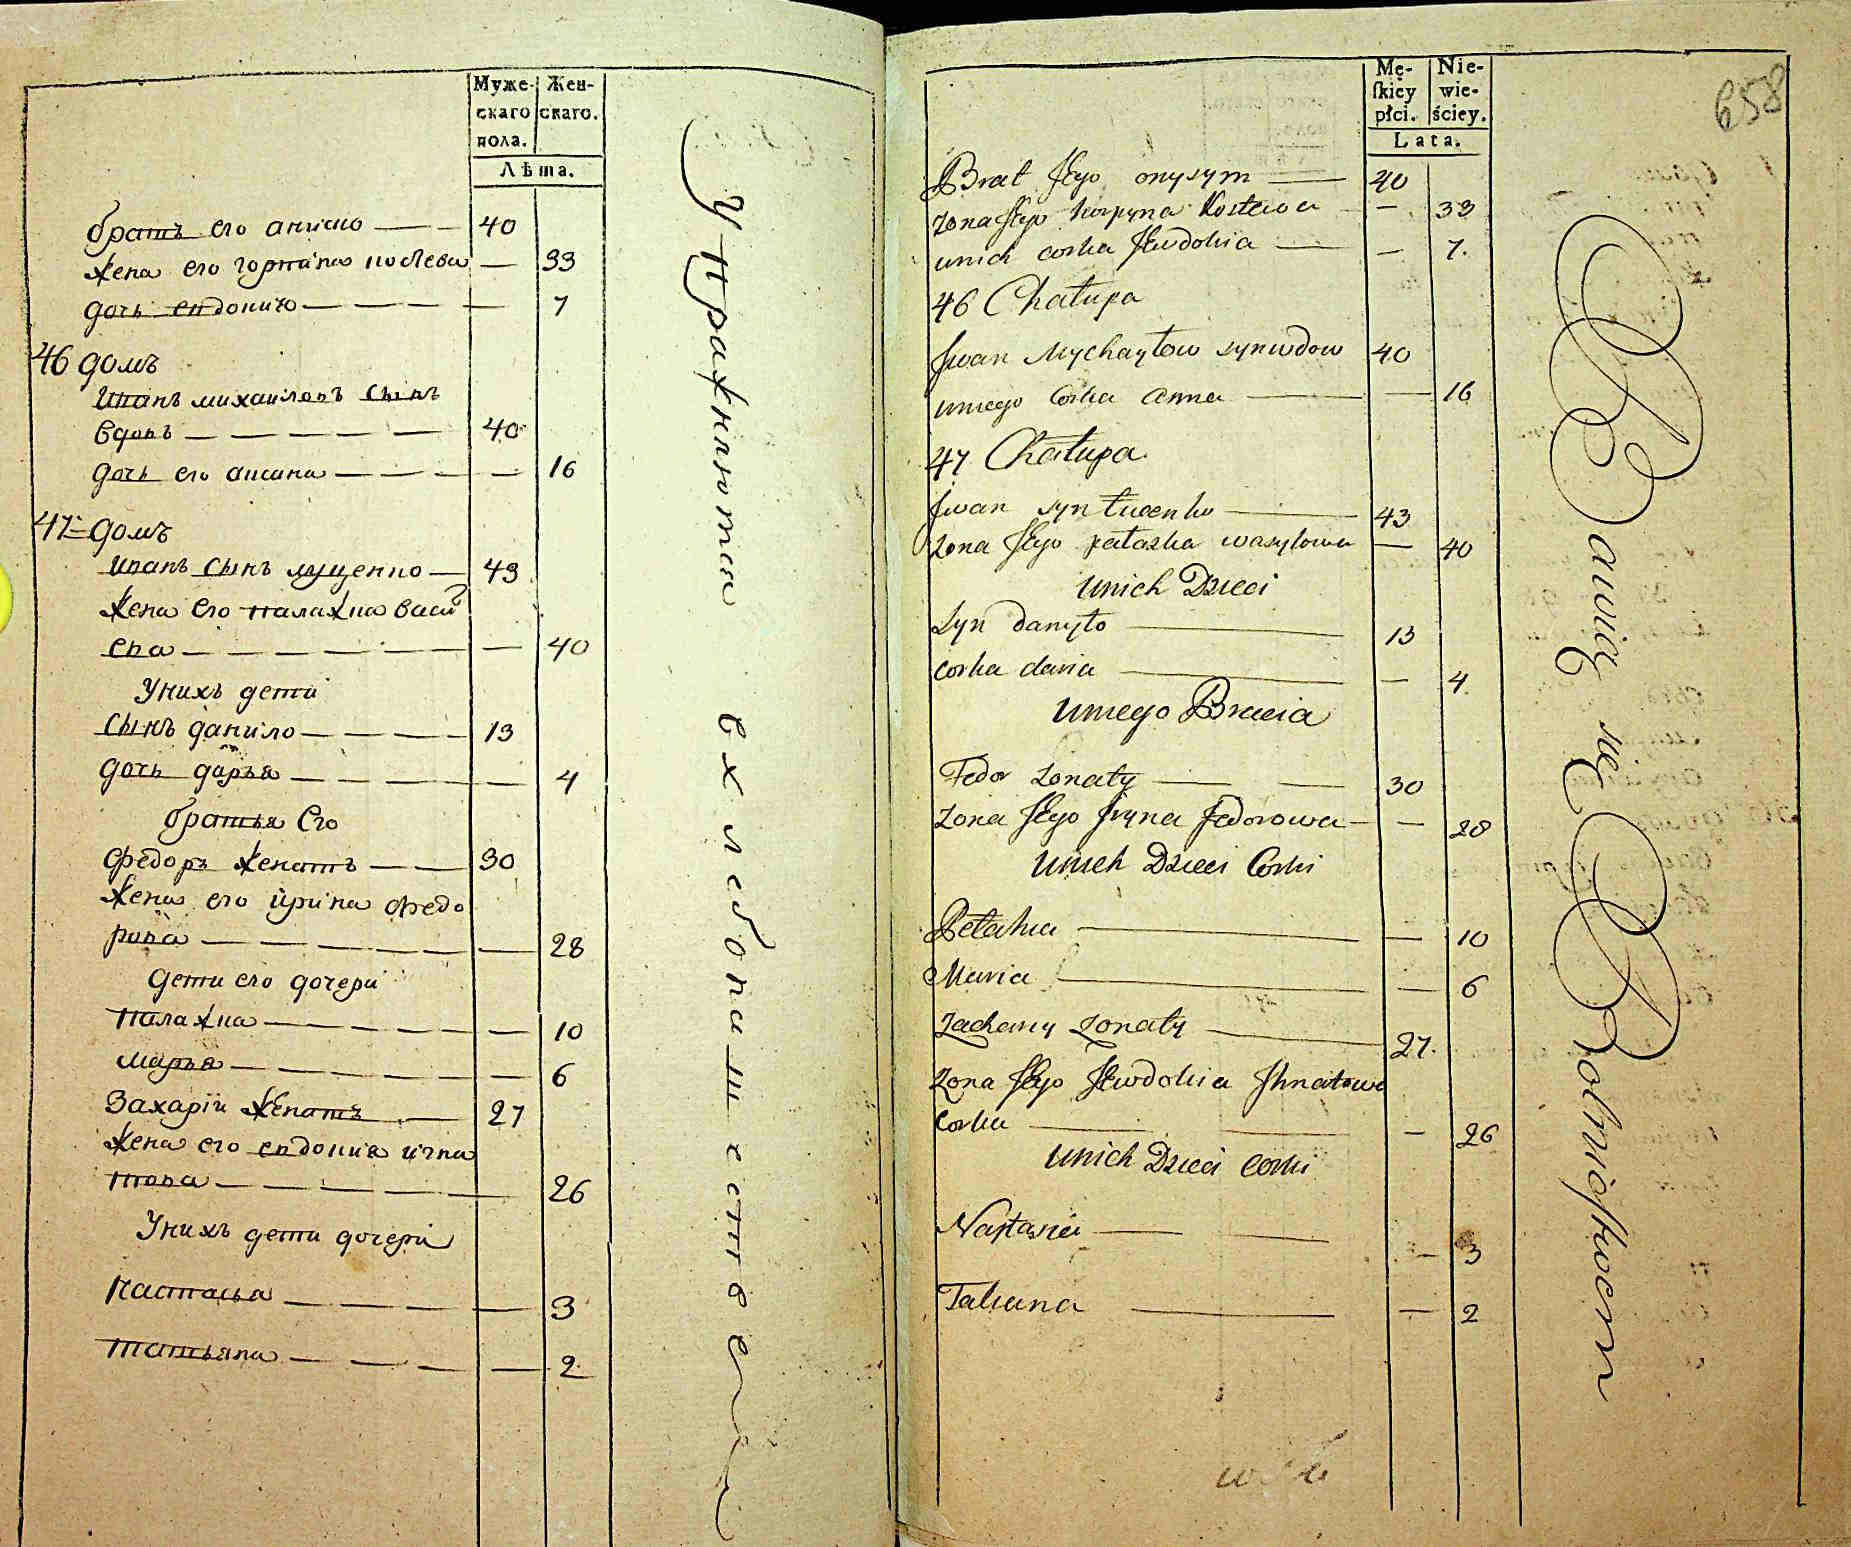 Муже-
скаго
пола.
Жен-
скаго.
Лѣта.
братъ его анисио — — 40
жена его горпина костева — 33
дочь евдокию — — — — 7
46 домъ
Иванъ михаиловъ сынъ
вдовъ — — — — — 40
дочь его анна — — — — 16
47 = домъ
иванъ сынъ луценко — 43
жена его палажка васи
ева — — — — — — 40
Унихъ дети
сынъ данило — — — — 13
дочь дарья — — — — — 4
братья Его
федоръ женатъ — — — 30
жена его ирина федо
рова — — — — — — 28
дети его дочери
палажка — — — — — — 10
марья — — — — — — 6
Захарій женатъ — — 27
жена его евдокия игна
това — — — — — — 26
Унихъ дети дочери
настасья — — — — — 3
татьяна — — — — — 2
Упражняютца в хлебопашестве
Mę-
ſkiey
płci.
Nie-
wie-
ściey.
Lata.
658
Brat Jego onysym — 40
zona Jego horpyna Kostewa — — 33
unich corka Jewdokia — — 7.
46 Chałupa
Jwan Mychayłow syn wdow 40
uniego Corka Anna — — 16
47 Chałupa
Jwan syn Łucenko — 43
zona Jego pałazka wasylowa — 40
Unich Dzieci
Syn danyło — 13
Corka daria — — 4
Uniego Bracia
Fedor Zonaty — — 30
Zona Jego Jryna Fedorowa — — 28
Unich Dzieci Corki
Pełahia — — 10
Maria — — 6
Zachary Zonaty — 27.
Zona Jego Jewdokia Ihnatowa
Corka — — — 26
Unich Dzieci Corki
Nastasia — — — 3
Tatiana — — 2
Bawią się Rolnictwem